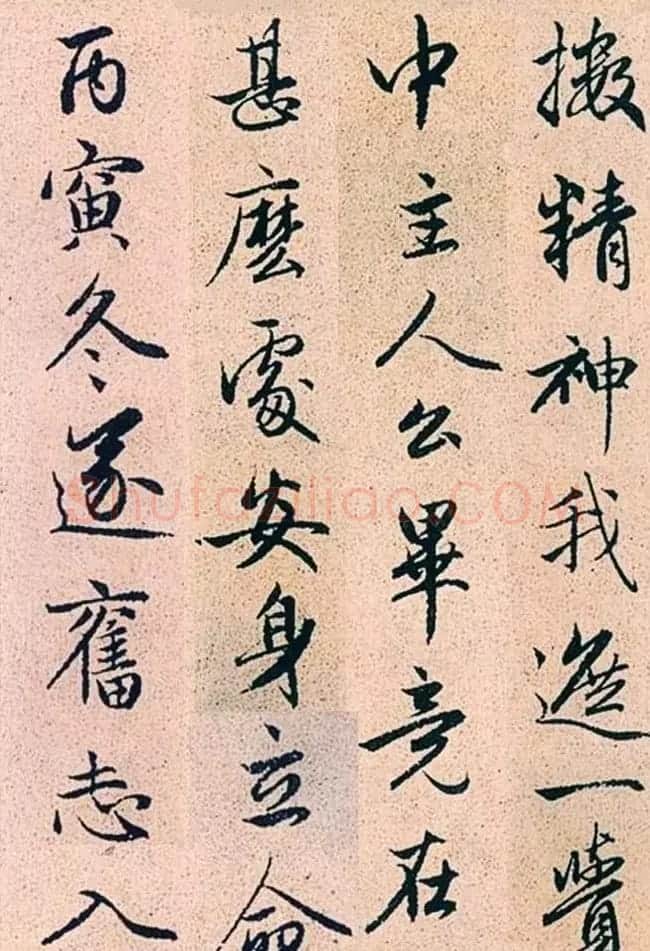 擻精神我遮一覺
中主人公畢竟在
甚麼處安身立命
丙寅冬遂奮志入
Shufaziliao.COM